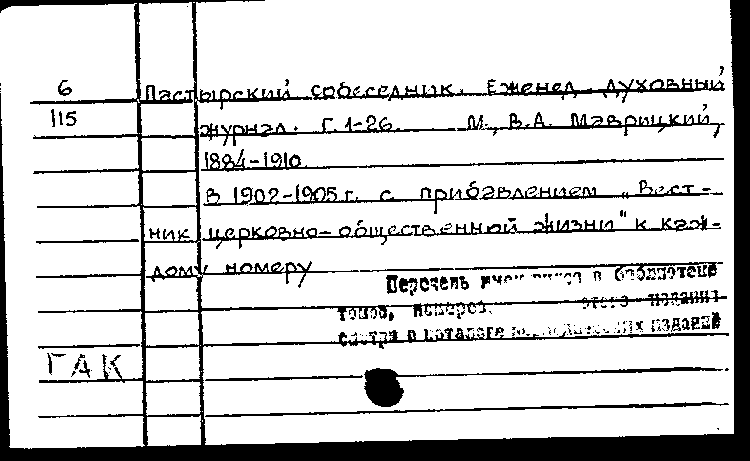 6
Пастырский собеседник. Еженед. духовный
115
журнал. Г. 1-26. М., В.А. Маврицкий,
1884-1910.
В 1902-1905 г. с прибавлением „Вест-
ник церковно-общественной жизни" к каж-
дому номеру
Перечень в библиотеке
томов, номеров этого издания
смотри в каталоге периодических изданий
ГАК